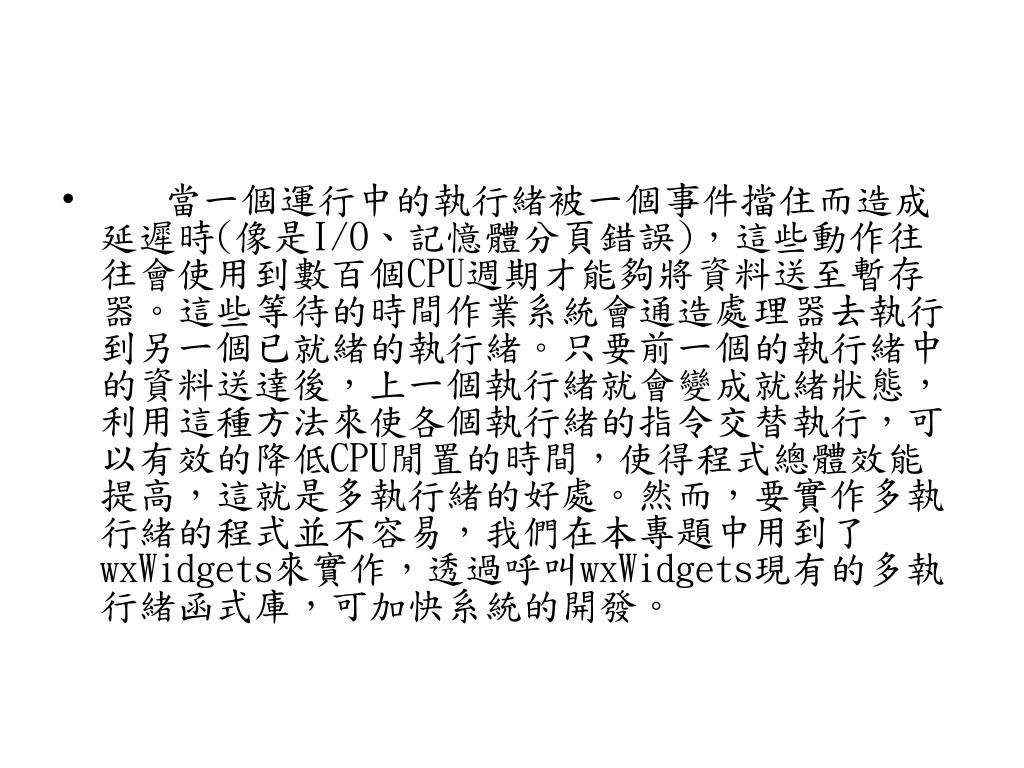 • 當一個運行中的執行緒被一個事件擋住而造成
延遲時(像是I/O、記憶體分頁錯誤)，這些動作往
往會使用到數百個CPU週期才能夠將資料送至暫存
器。這些等待的時間作業系統會通造處理器去執行
到另一個已就緒的執行緒。只要前一個的執行緒中
的資料送達後，上一個執行緒就會變成就緒狀態，
利用這種方法來使各個執行緒的指令交替執行，可
以有效的降低CPU閒置的時間，使得程式總體效能
提高，這就是多執行緒的好處。然而，要實作多執
行緒的程式並不容易，我們在本專題中用到了
wxWidgets來實作，透過呼叫wxWidgets現有的多執
行緒函式庫，可加快系統的開發。